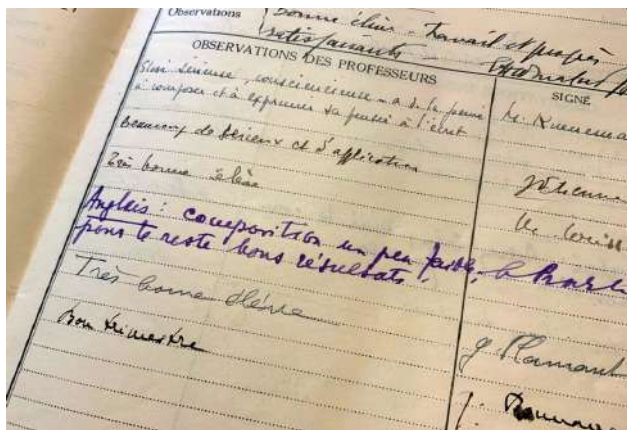 Observations
Bonne élève - Travail et progrès
satisfaisants
OBSERVATIONS DES PROFESSEURS
SIGNÉ
Elève sérieuse, consciencieuse - a de la peine
à composer et à exprimer sa pensée à l'écrit
Beaucoup de sérieux et d'application
Très bonne élève
Anglais : composition un peu faible,
pour le reste bons résultats.
Très bonne élève
Bon trimestre
G. Flamant